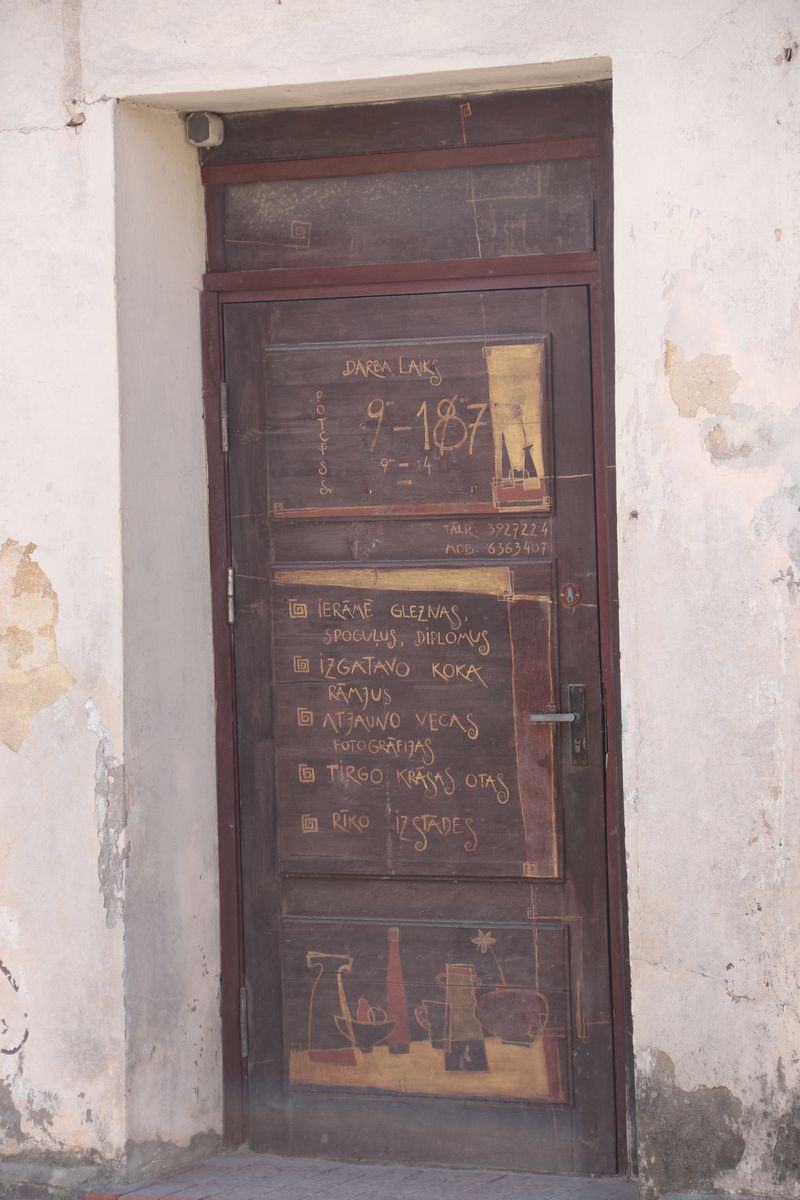 DARBA LAIKS
P O T C P S Sv
9 - 18
9 - 14
-
TĀLR. 3927224
MOB. 6363407
IERĀMĒ GLEZNAS,
SPOGUĻUS, DIPLOMUS
IZGATAVO KOKA
RĀMJUS
ATJAUNO VECAS
FOTOGRĀFIJAS
TIRGO KRĀSAS OTAS
RĪKO IZSTĀDES